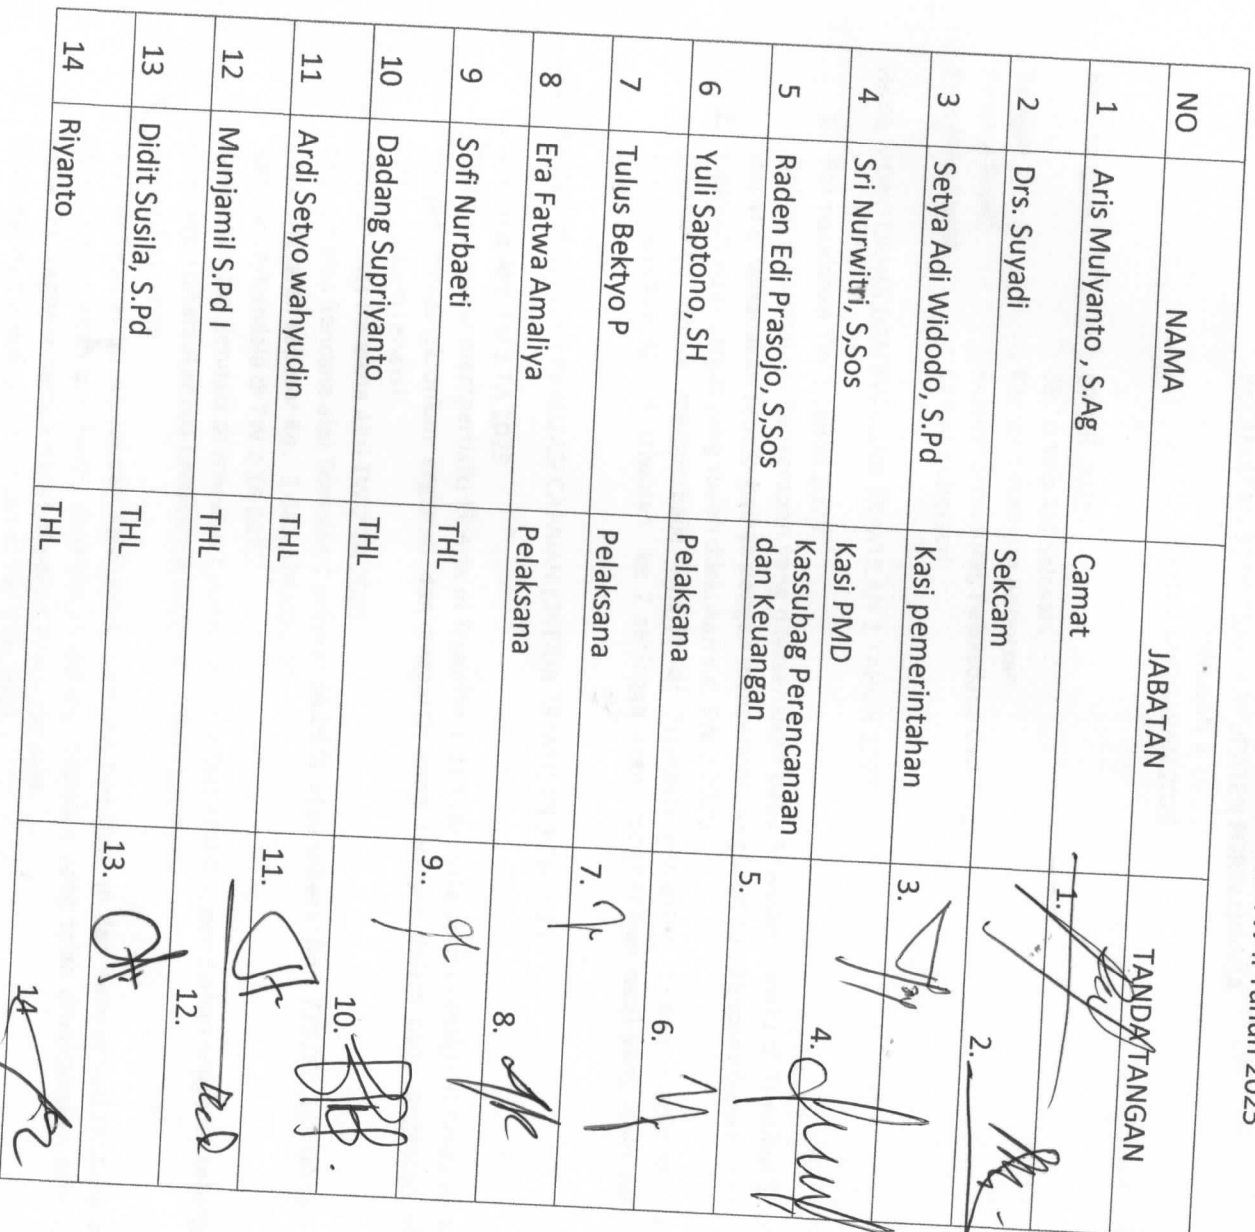 Tahun 2025
NO NAMA JABATAN TANDA TANGAN
1 Aris Mulyanto , S.Ag Camat 1.
2 Drs. Suyadi Sekcam 2.
3 Setya Adi Widodo, S.Pd Kasi pemerintahan 3.
4 Sri Nurwitri, S,Sos Kasi PMD 4.
5 Raden Edi Prasojo, S,Sos Kassubag Perencanaan
dan Keuangan 5.
6 Yuli Saptono, SH Pelaksana 6.
7 Tulus Bektyo P Pelaksana 7.
8 Era Fatwa Amaliya Pelaksana 8.
9 Sofi Nurbaeti THL 9..
10 Dadang Supriyanto THL 10.
11 Ardi Setyo wahyudin THL 11.
12 Munjamil S.Pd I THL 12.
13 Didit Susila, S.Pd THL 13.
14 Riyanto THL 14